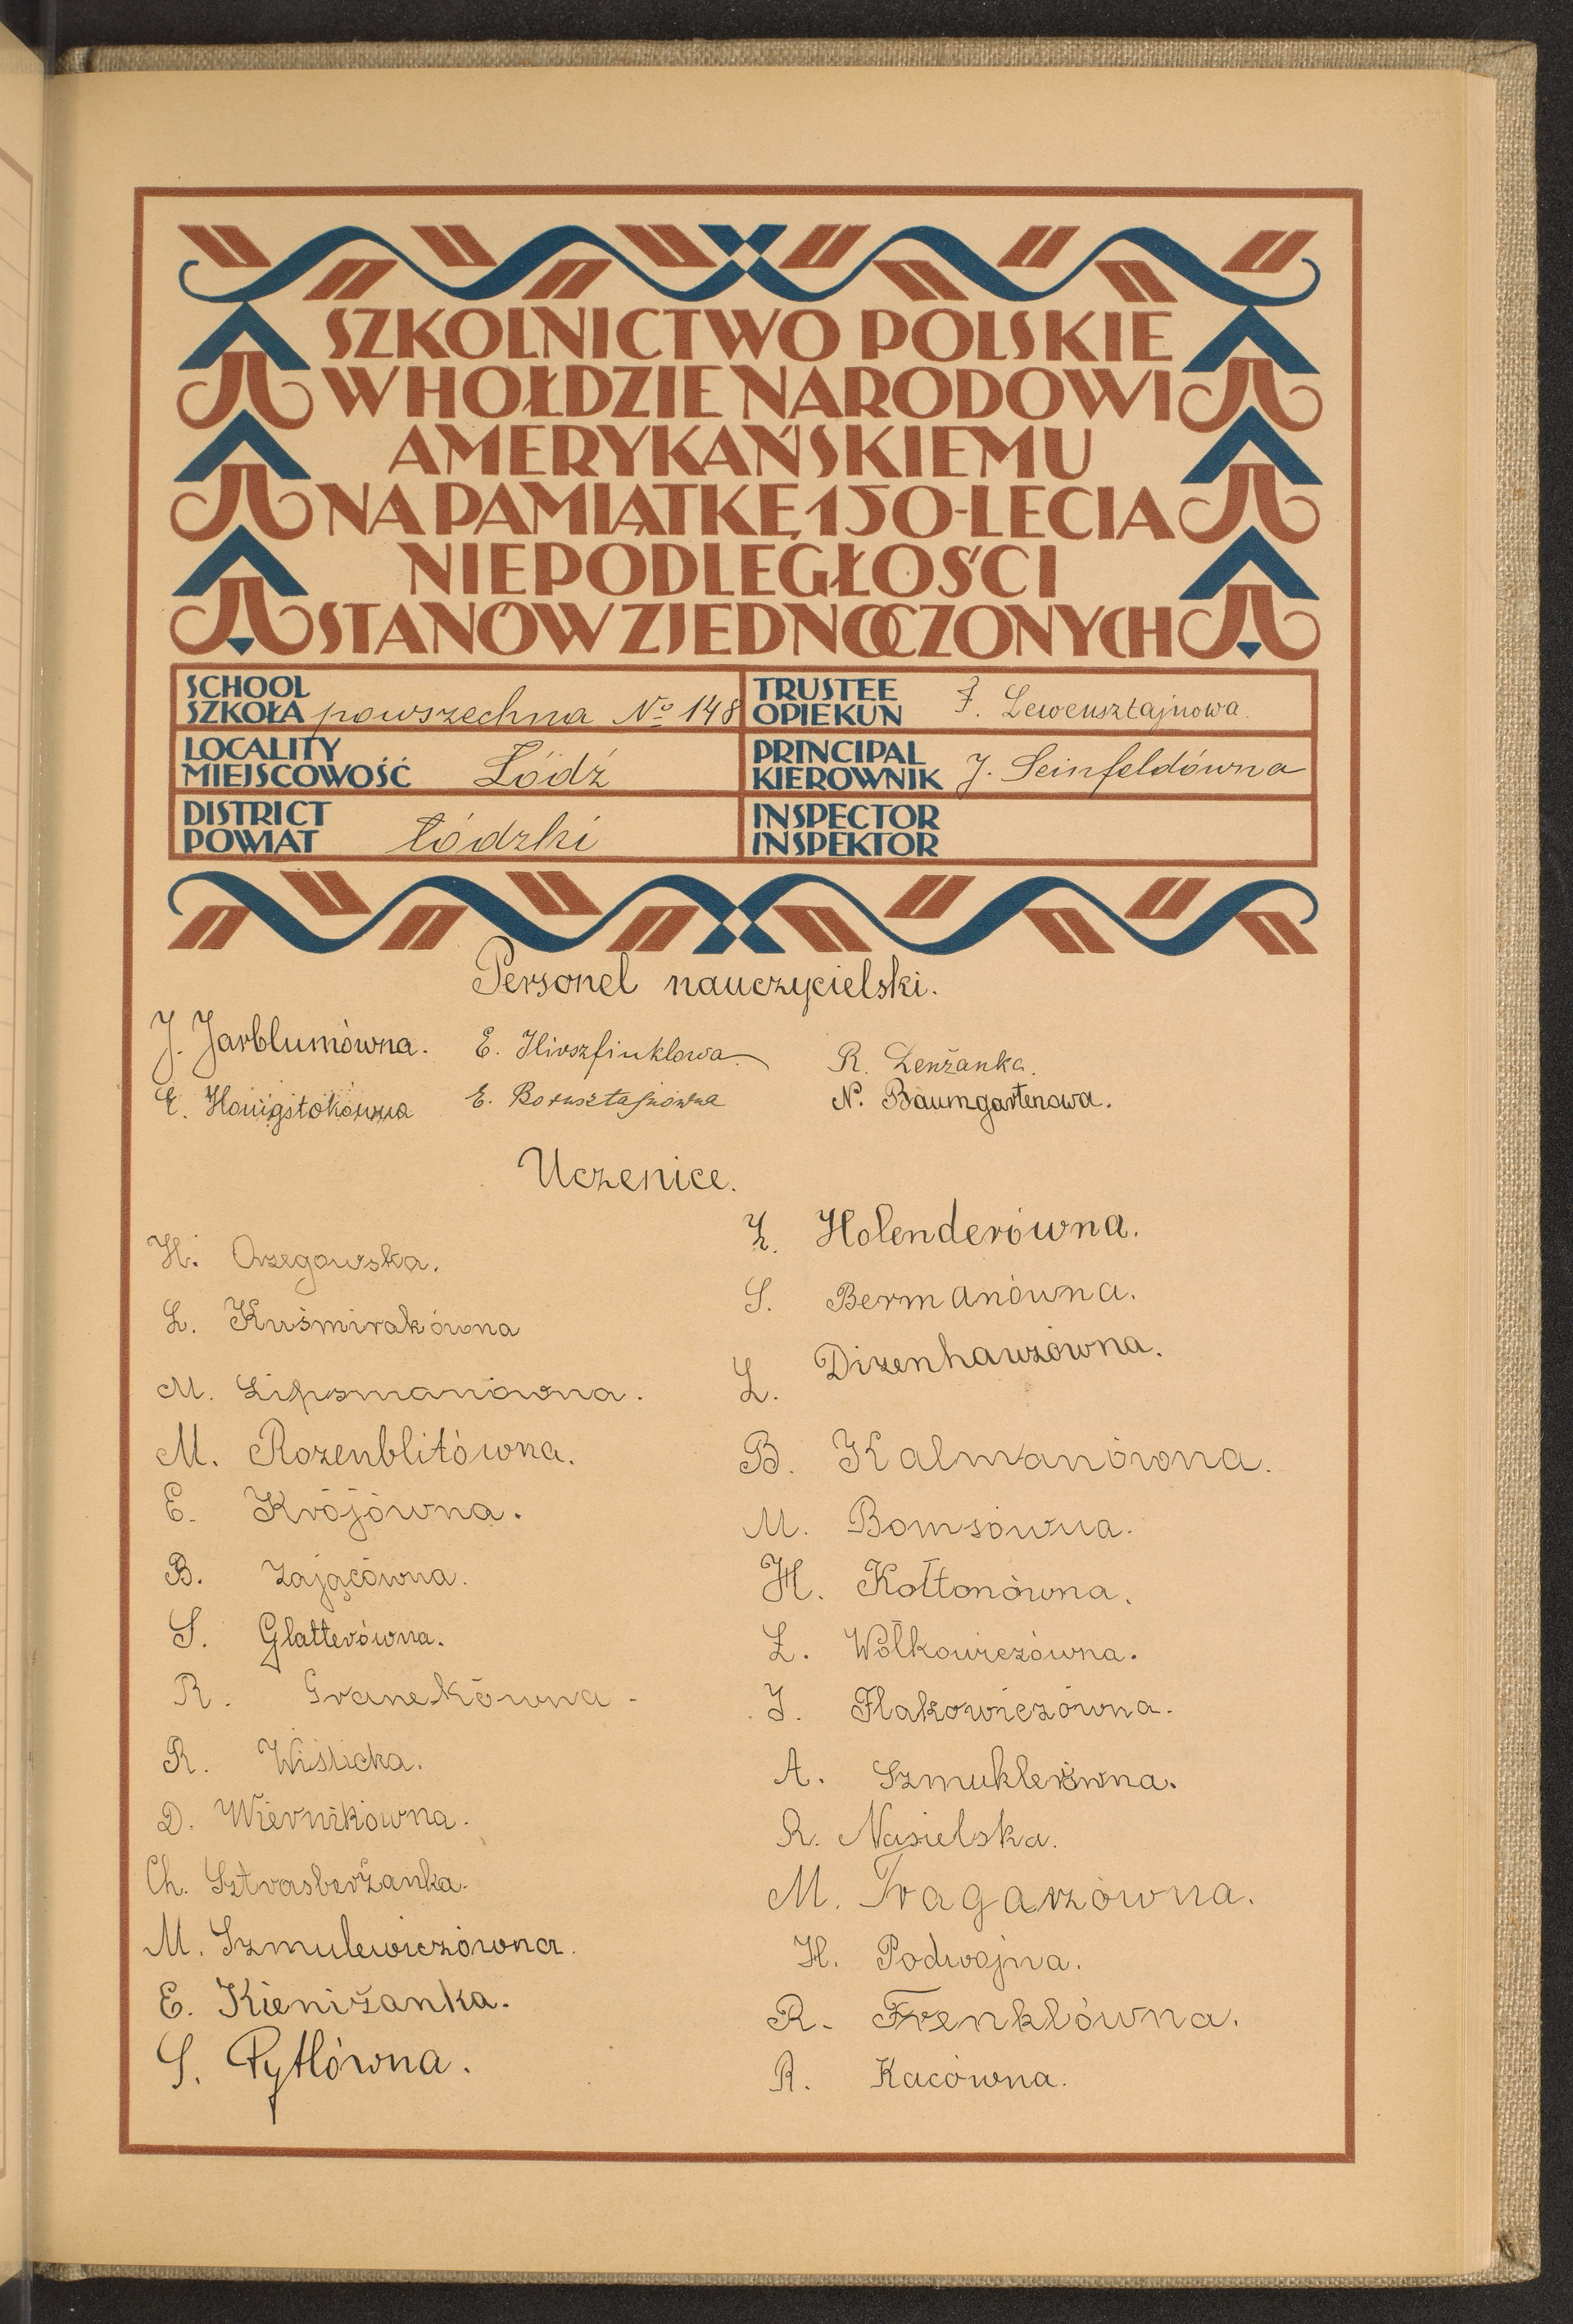 SZKOLNICTWO POLSKIE
W HOŁDZIE NARODOWI
AMERYKAŃSKIEMU
NA PAMIĄTKĘ 150-LECIA
NIEPODLEGŁOŚCI
STANÓW ZJEDNOCZONYCH
SCHOOL
SZKOŁA powszechna No 148
TRUSTEE
OPIEKUN F. Lewensztajnowa
LOCALITY
MIEJSCOWOŚĆ Łódź
PRINCIPAL
KIEROWNIK J. Seinfeldówna
DISTRICT
POWIAT Łódzki
INSPECTOR
INSPEKTOR
Personel nauczycielski.
J. Jarblumówna. E. Hirszfinklowa. R. Lenżanka.
E. Honigstokówna E. Bornsztajnówna N. Baumgartenowa.
Uczenice.
H. Orzegowska.
L. Kuśmirakówna
M. Lipsmanówna.
M. Rozenblitówna.
E. Krójówna.
B. Zającówna.
S. Glatterówna.
R. Granekówna.
R. Wiślicka.
D. Wiernikówna.
Ch. Sztrasberżanka.
M. Szmulewiczówna.
E. Kieniżanka.
S. Pytlówna.
Ł. Holenderówna.
S. Bermanówna.
L. Dizenhauzówna.
B. Kalmanówna.
M. Bomsówna.
H. Kołtonówna.
Ł. Wólkowiczówna.
I. Flakowiczówna.
A. Szmuklerówna.
R. Nasielska.
M. Tragarzówna.
H. Podwojna.
R. Frenklówna.
R. Kacówna.